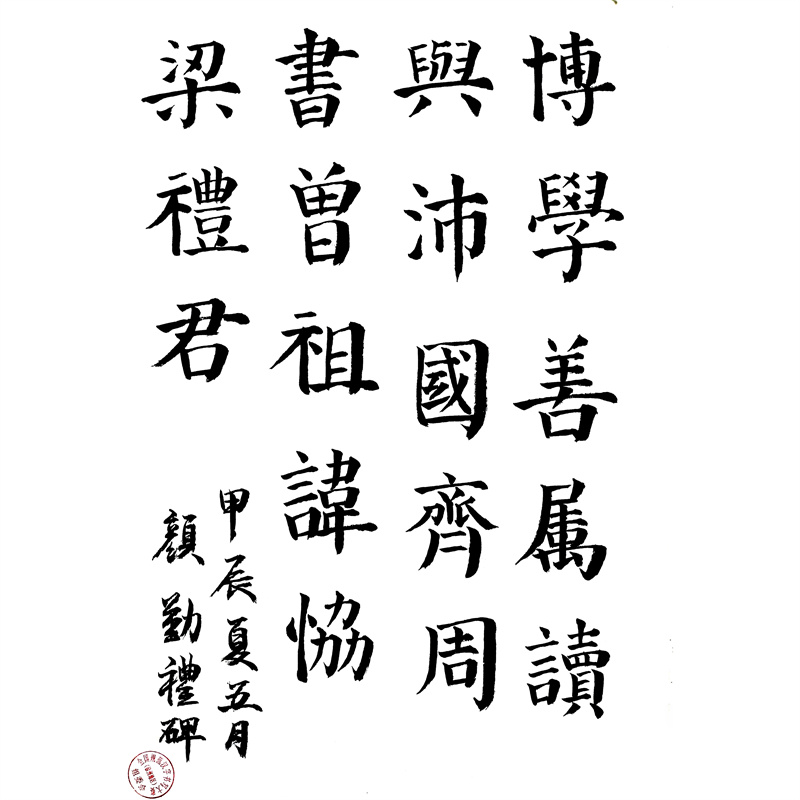 博學善属讀
與沛國齊周
書曽祖諱恊
梁禮君
甲辰夏五月
顏勤禮碑